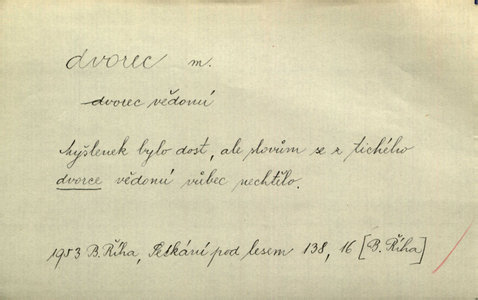 dvorec m.
dvorec vědomí
Myšlenek bylo dost, ale slovům se z tichého
dvorce vědomí vůbec nechtělo.
1953 B. Říha, Setkání pod lesem 138, 16 [B. Říha]